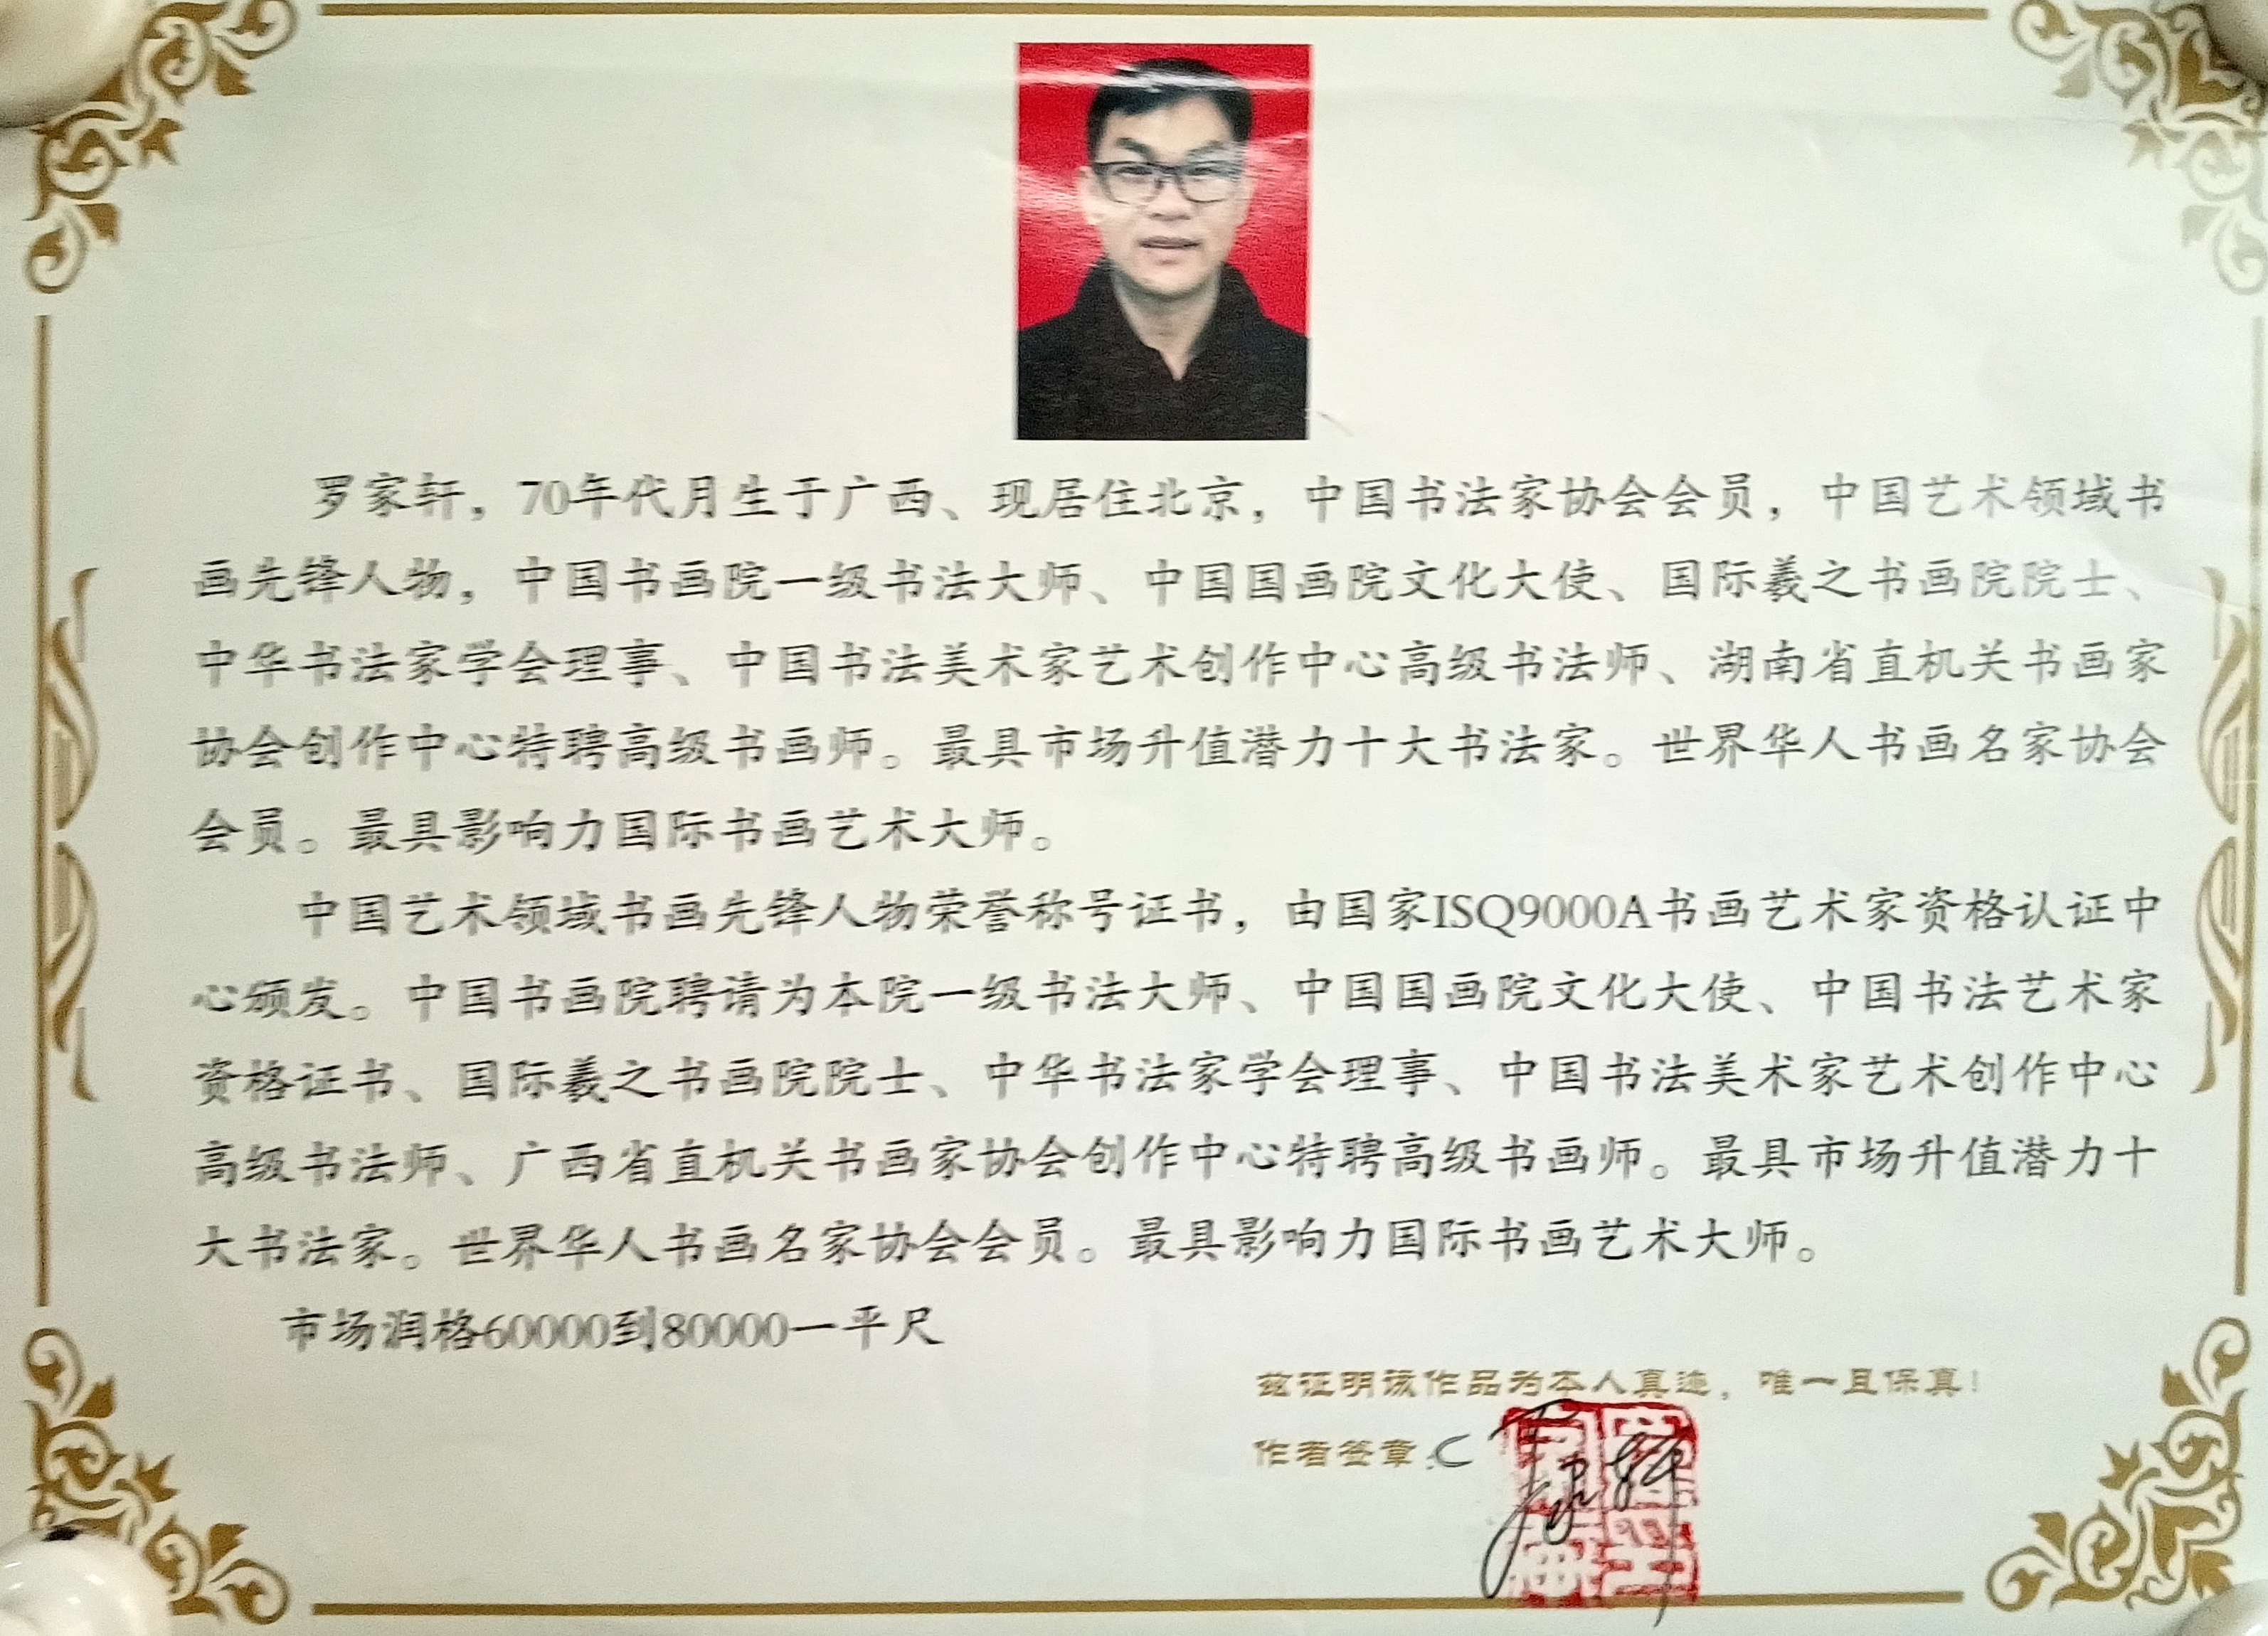 罗家轩，70年代月生于广西、现居住北京，中国书法家协会会员，中国艺术领域书
画先锋人物，中国书画院一级书法大师、中国国画院文化大使、国际羲之书画院院士、
中华书法家学会理事、中国书法美术家艺术创作中心高级书法师、湖南省直机关书画家
协会创作中心特聘高级书画师。最具市场升值潜力十大书法家。世界华人书画名家协会
会员。最具影响力国际书画艺术大师。
中国艺术领域书画先锋人物荣誉称号证书，由国家ISQ9000A书画艺术家资格认证中
心颁发。中国书画院聘请为本院一级书法大师、中国国画院文化大使、中国书法艺术家
资格证书、国际羲之书画院院士、中华书法家学会理事、中国书法美术家艺术创作中心
高级书法师、广西省直机关书画家协会创作中心特聘高级书画师。最具市场升值潜力十
大书法家。世界华人书画名家协会会员。最具影响力国际书画艺术大师。
市场润格60000到80000一平尺
兹证明该作品为本人真迹，唯一且保真！
作者签章：